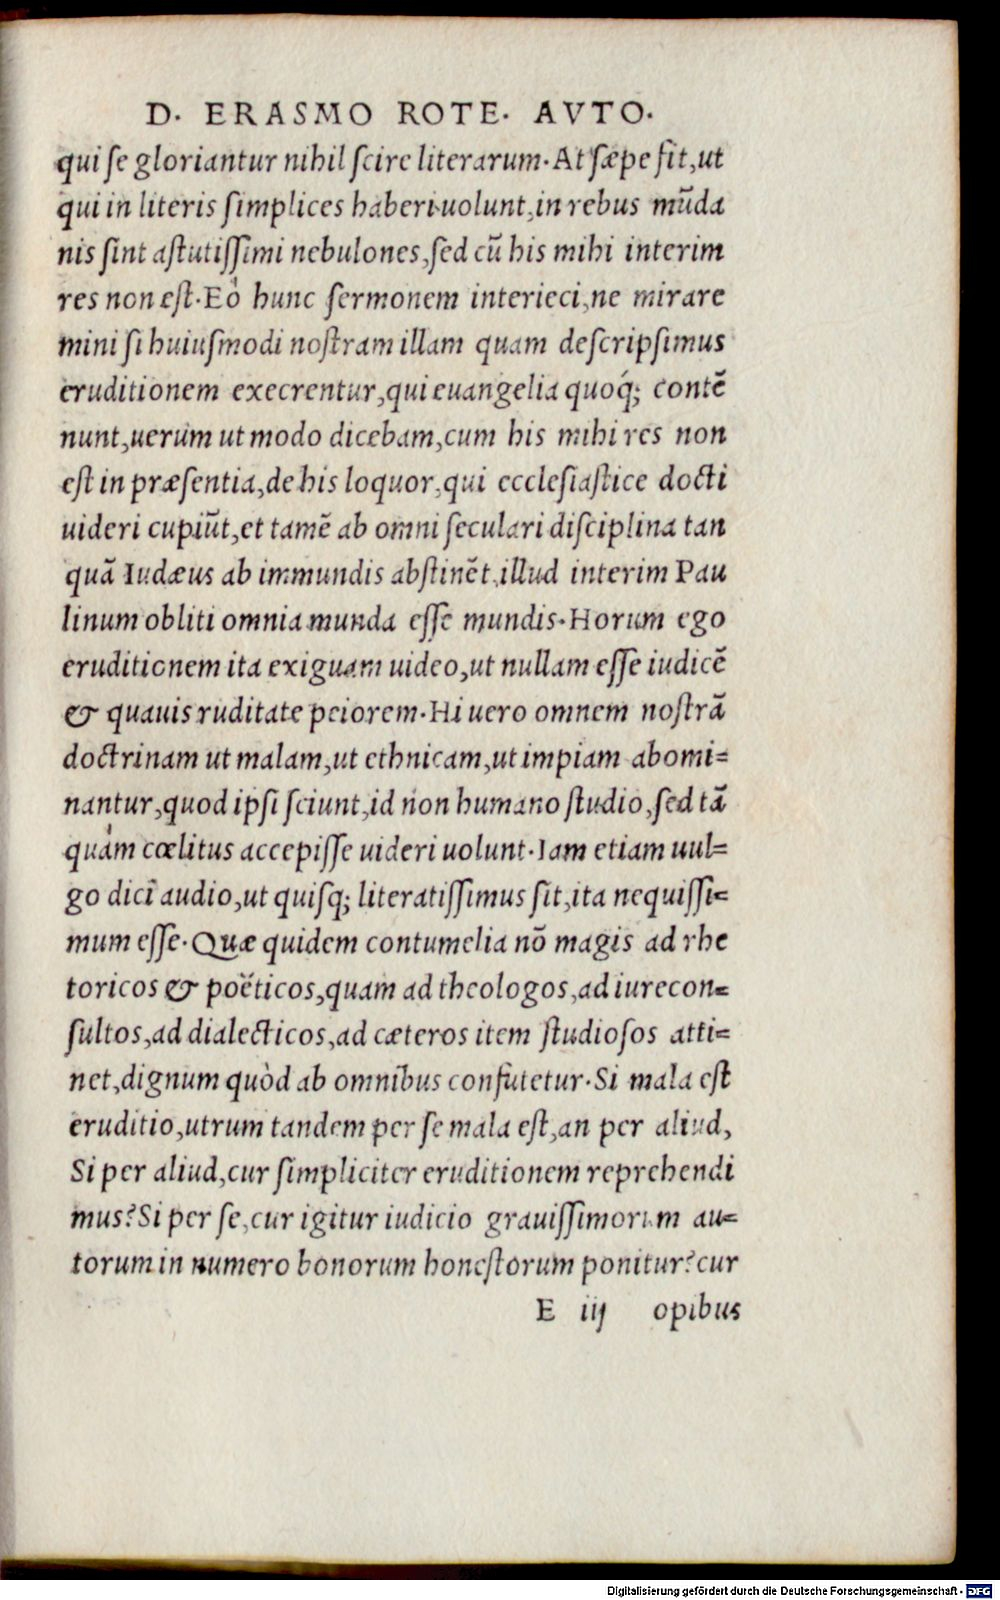 D. ERASMO ROTE. AVTO.
qui se gloriantur nihil scire literarum. At sæpe fit, ut
qui in literis simplices haberi uolunt, in rebus mūda
nis sint astutissimi nebulones, sed cū his mihi interim
res non est. Eò hunc sermonem interieci, ne mirare
mini si huiusmodi nostram illam quam descripsimus
eruditionem execrentur, qui euangelia quoq́; contē
nunt, uerum ut modo dicebam, cum his mihi res non
est in præsentia, de his loquor, qui ecclesiastice docti
uideri cupiūt, et tamē ab omni seculari disciplina tan
quā Iudæus ab immundis abstinēt, illud interim Pau
linum obliti omnia munda esse mundis. Horum ego
eruditionem ita exiguam uideo, ut nullam esse iudicē
& quauis ruditate peiorem. Hi uero omnem nostrā
doctrinam ut malam, ut ethnicam, ut impiam abomi=
nantur, quod ipsi sciunt, id non humano studio, sed tā
quàm cœlitus accepisse uideri uolunt. Iam etiam uul=
go dici audio, ut quisq; literatissimus sit, ita nequissi=
mum esse. Quæ quidem contumelia nō magis ad rhe
toricos & poëticos, quam ad theologos, ad iurecon=
sultos, ad dialecticos, ad cæteros item studiosos atti=
net, dignum quòd ab omnibus confutetur. Si mala est
eruditio, utrum tandem per se mala est, an per aliud,
Si per aliud, cur simpliciter eruditionem reprehendi
mus? Si per se, cur igitur iudicio grauissimorum au=
torum in numero bonorum honestorum ponitur? cur
E iij opibus
Digitalisierung gefördert durch die Deutsche Forschungsgemeinschaft - DFG